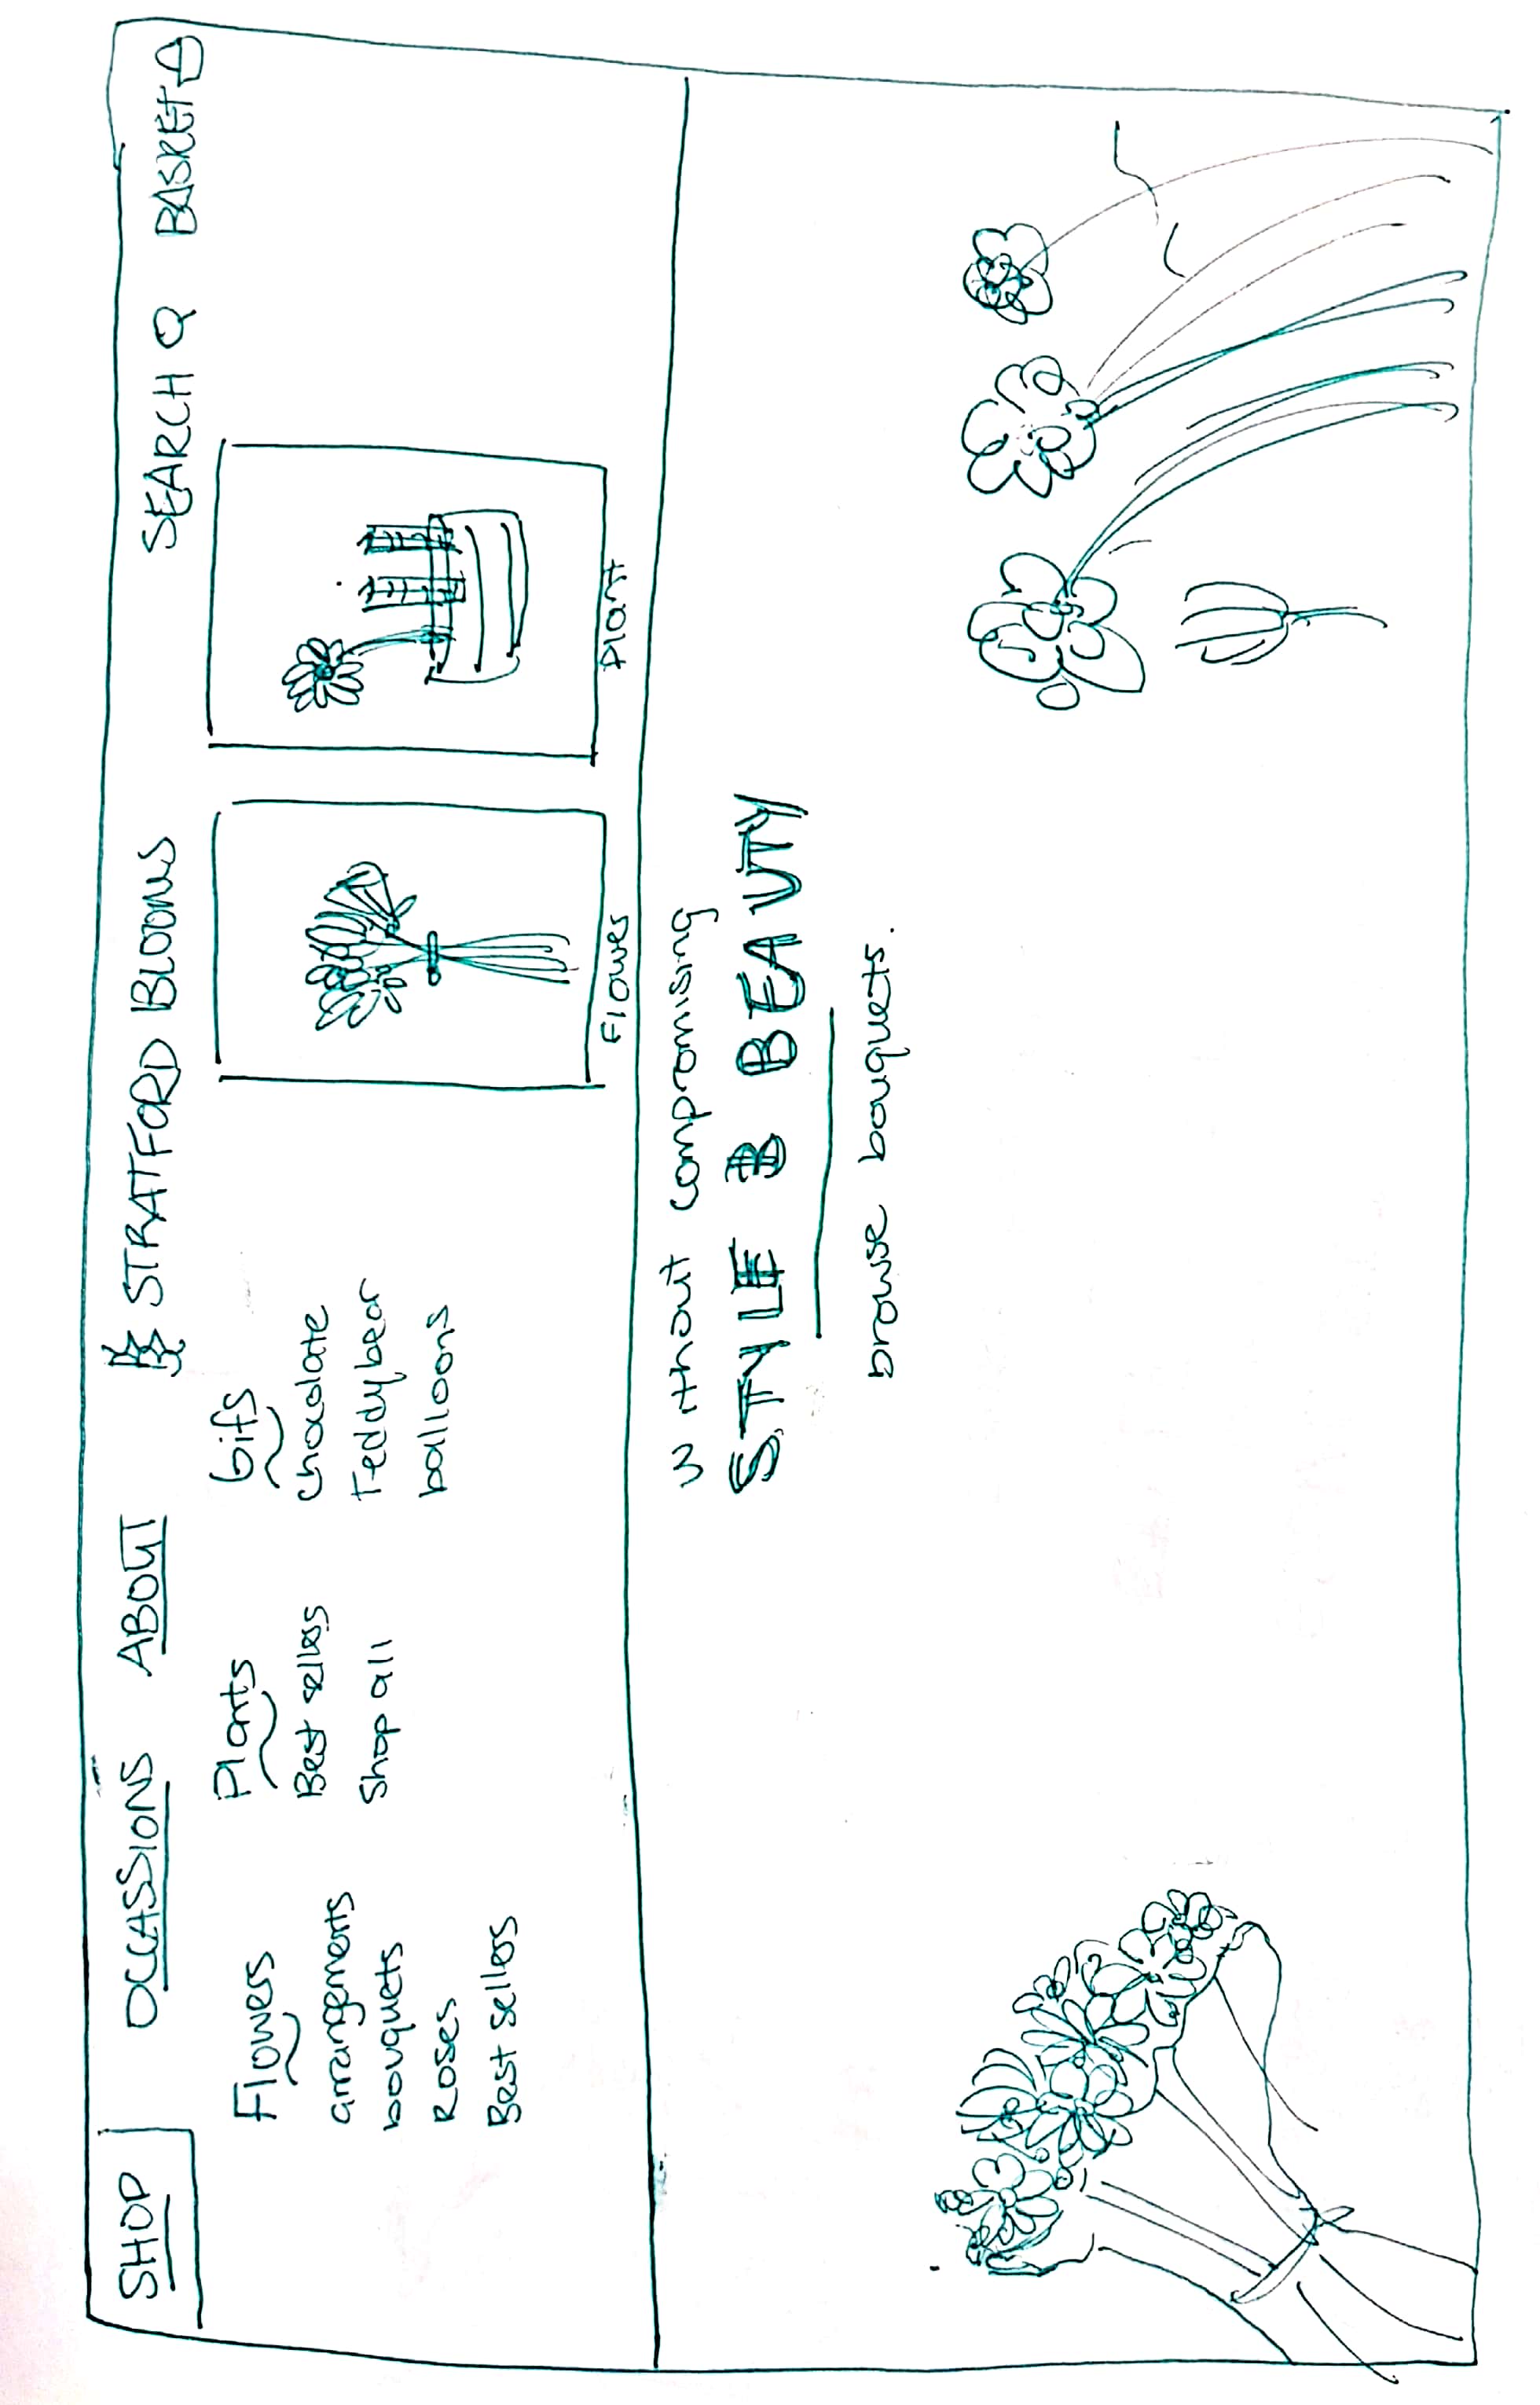 SHOP OCCASSIONS ABOUT STRATFORD BLOOMS SEARCH BASKET
Flowers
arrangements
bouquets
Roses
Best sellers
Plants
Best sellers
Shop all
Gifs
chocolate
Teddybear
balloons
Flower
Plant
Without compromising
STYLE & BEAUTY
browse bouquets.